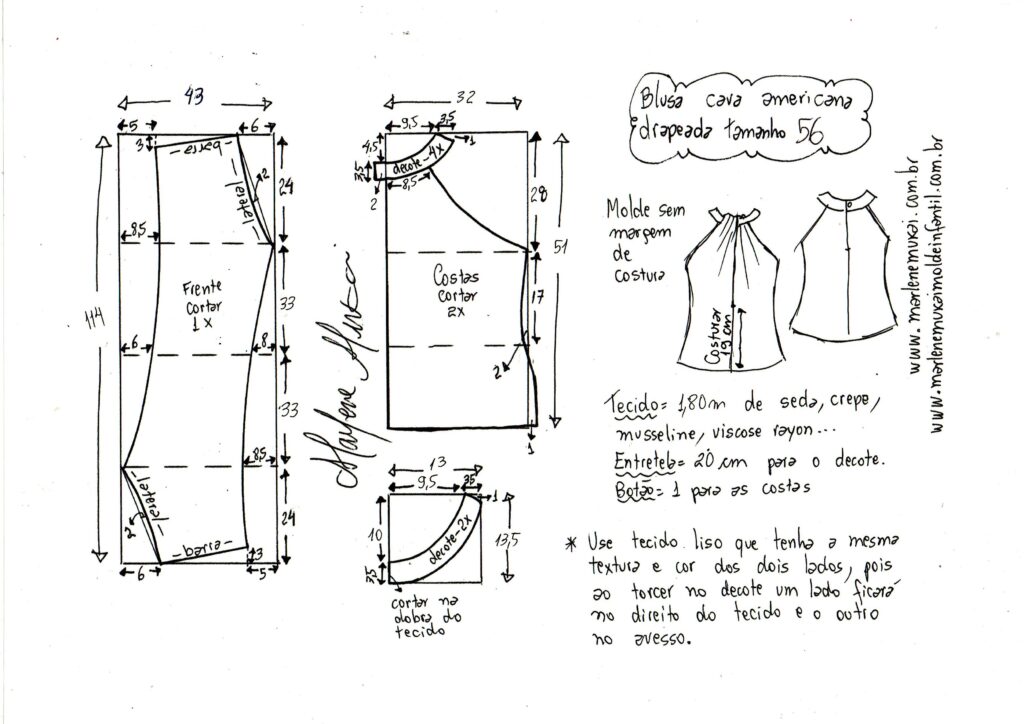 43
5
6
3
- barra -
- lateral -
2
24
8,5
Frente
cortar
1x
33
114
6
8
33
8,5
- lateral -
2
24
- barra -
3
6
5
Marlene Mukai
32
9,5
3,5
1
4,5
decote-4x
3,5
8,5
2
28
51
Costas
cortar
2x
17
2
1
13
9,5
3,5
1
10
decote-2x
13,5
3,5
cortar na
dobra do
tecido
Blusa cava americana
drapeada tamanho 56
Molde sem
margem
de
costura
Costurar
19 cm
www.marlenemukai.com.br
www.marlenemukaimoldeinfantil.com.br
Tecido= 1,80m de seda, crepe,
musseline, viscose rayon...
Entretela= 20 cm para o decote.
Botão= 1 para as costas
* Use tecido liso que tenha a mesma
textura e cor dos dois lados, pois
ao torcer no decote um lado ficará
no direito do tecido e o outro
no avesso.